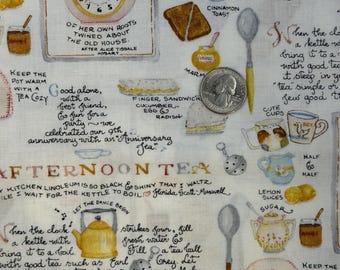 OF HER OWN ROOTS
TWINED ABOUT
THE OLD HOUSE.
AFTER ALICE TISDALE
HOBART
CINNAMON
TOAST
KEEP THE
POT WARM
WITH A
TEA COZY
Good alone,
with a
best friend,
& fun for a
party ~ we
celebrated our 9th
anniversary with an Anniversary
Tea
FINGER SANDWICH
CUCUMBER
EGG &
RADISH
When the clock
a kettle with
bring it to a
with good tea
it steep in
tea simple or
feel good.
CUTE
CUPS
HALF
&
HALF
AFTERNOON TEA
KITCHEN LINOLEUM IS SO BLACK & SHINY THAT I WALTZ
WHILE I WAIT FOR THE KETTLE TO BOIL. Florida Scott-Maxwell
LEMON
SLICES
LET THE DANCE BEGIN
SUGAR
When the clock strikes four, fill
a kettle with fresh water &
bring it to a boil. Fill a tea ball
with good tea, such as Earl Grey. Let
KEEP THE
POT WARM
WITH A